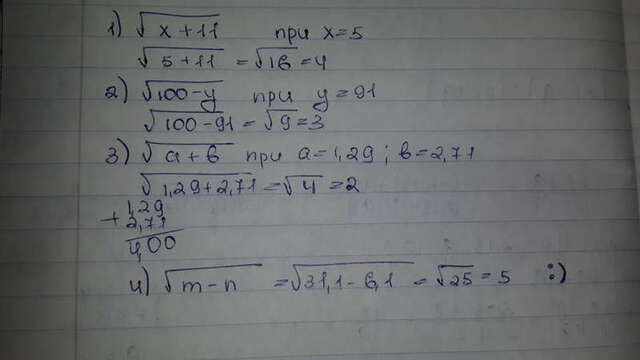 1) √x+11 при x=5
√5+11 = √16 = 4
2) √100-y при y=91
√100-91 = √9 = 3
3) √a+b при a=1,29; b=2,71
√1,29+2,71 = √4 = 2
+1,29
2,71
4,00
4) √m-n = √31,1-6,1 = √25 = 5 :)